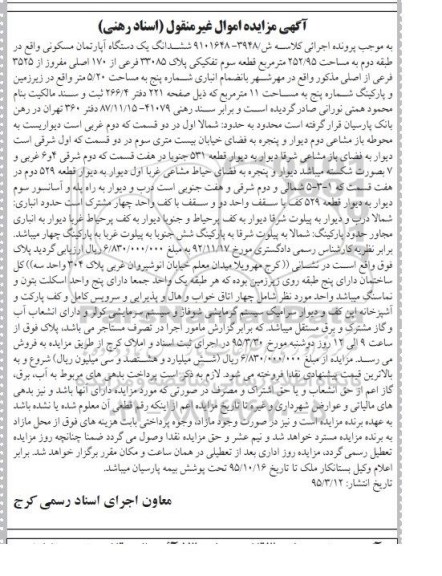 آگهی مزایده اموال غیرمنقول (اسناد رهنی)
به موجب پرونده اجرائی کلاسه ش/۳۹۴۸-۹۱۰۱۶۴۸ ششدانگ یک دستگاه آپارتمان مسکونی واقع در
طبقه دوم به مساحت ۲۵۲/۹۵ مترمربع قطعه سوم تفکیکی پلاک ۳۳۰۸۵ فرعی از ۱۷۰ اصلی مفروز از ۳۵۲۵
فرعی از اصلی مذکور واقع در مهرشهر بانضمام انباری شماره پنج به مساحت ۵/۲۰ متر واقع در زیرزمین
و پارکینگ شماره پنج به مساحت ۱۱ مترمربع که ذیل صفحه ۲۲۱ دفتر ۲۶۶/۴ ثبت و سند مالکیت بنام
محمود همتی نورانی صادر گردیده است و برابر سند رهنی ۴۱۰۷۹-۸۷/۱۱/۱۵ دفتر ۳۶۰ تهران در رهن
بانک پارسیان قرار گرفته است محدود به حدود: شمالا اول در دو قسمت که دوم غربی است دیواریست به
محوطه باز مشاعی دوم دیوار و پنجره به فضای خیابان بیست متری سوم در دو قسمت که اول شرقی است
دیوار به فضای باز مشاعی شرقا دیوار به دیوار قطعه ۵۳۱ جنوبا در هفت قسمت که دوم شرقی ۴و۶ غربی و
۷ بصورت شکسته میباشد دیوار و پنجره به فضای حیاط مشاعی غربا اول دیوار به دیوار قطعه ۵۲۹ دوم در
هفت قسمت که ۱-۳-۵ شمالی و دوم شرقی و هفت جنوبی است درب و دیوار به راه پله و آسانسور سوم
دیوار به دیوار قطعه ۵۲۹ کف با سقف واحد دو و سقف با کف واحد چهار مشترک است حدود انباری:
شمالا درب و دیوار به پیلوت شرقا دیوار به کف پرحیاط و جنوبا دیوار به کف پرحیاط غربا دیوار به انباری
مجاور حدود پارکینگ: شمالا به پیلوت شرقا به پارکینگ شش جنوبا به پیلوت غربا به پارکینگ چهار میباشد.
برابر نظریه کارشناس رسمی دادگستری مورخ ۹۲/۱۱/۱۷ به مبلغ ۶/۸۳۰/۰۰۰/۰۰۰ ریال ارزیابی گردید پلاک
فوق واقع است در نشانی ((کرج مهرویلا میدان معلم خیابان انوشیروان غربی پلاک ۳۰۴ واحد سه)) کل
ساختمان دارای پنج طبقه روی زیرزمین بوده که هر طبقه یک واحد جمعا دارای پنج واحد اسکلت بتون و
نماسنگ میباشد واحد مورد نظر شامل چهار اتاق خواب و هال و پذیرایی و سرویس کامل و کف پارکت و
آشپزخانه اپن کف و دیوار سرامیک سیستم گرمایشی شوفاژ و سیستم سرمایشی کولر و دارای انشعاب آب
و گاز مشترک و برق مستقل میباشد. که برابر گزارش مامور اجرا در تصرف مستاجر می باشد، پلاک فوق از
ساعت ۹ الی ۱۲ روز دوشنبه مورخ ۹۵/۳/۳۰ در اجرای ثبت اسناد و املاک کرج از طریق مزایده به فروش
می رسد. مزایده از مبلغ ۶/۸۳۰/۰۰۰/۰۰۰ ریال (شش میلیارد و هشتصد و سی میلیون ریال) شروع و به
بالاترین قیمت پیشنهادی نقدا فروخته می شود. لازم به ذکر است پرداخت بدهی های مربوط به آب، برق،
گاز اعم از حق انشعاب و یا حق اشتراک و مصرف در صورتی که مورد مزایده دارای آنها باشد و نیز بدهی
های مالیاتی و عوارض شهرداری و غیره تا تاریخ مزایده اعم از اینکه رقم قطعی آن معلوم شده یا نشده باشد
به عهده برنده مزایده است و نیز در صورت وجود مازاد، وجوه پرداختی بابت هزینه های فوق از محل مازاد
به برنده مزایده مسترد خواهد شد و نیم عشر و حق مزایده نقدا وصول می گردد ضمنا چنانچه روز مزایده
تعطیل رسمی گردد، مزایده روز اداری بعد از تعطیلی در همان ساعت و مکان مقرر برگزار خواهد شد. برابر
اعلام وکیل بستانکار ملک تا تاریخ ۹۵/۱۰/۱۶ تحت پوشش بیمه پارسیان میباشد.
تاریخ انتشار: ۹۵/۳/۱۲
معاون اجرای اسناد رسمی کرج